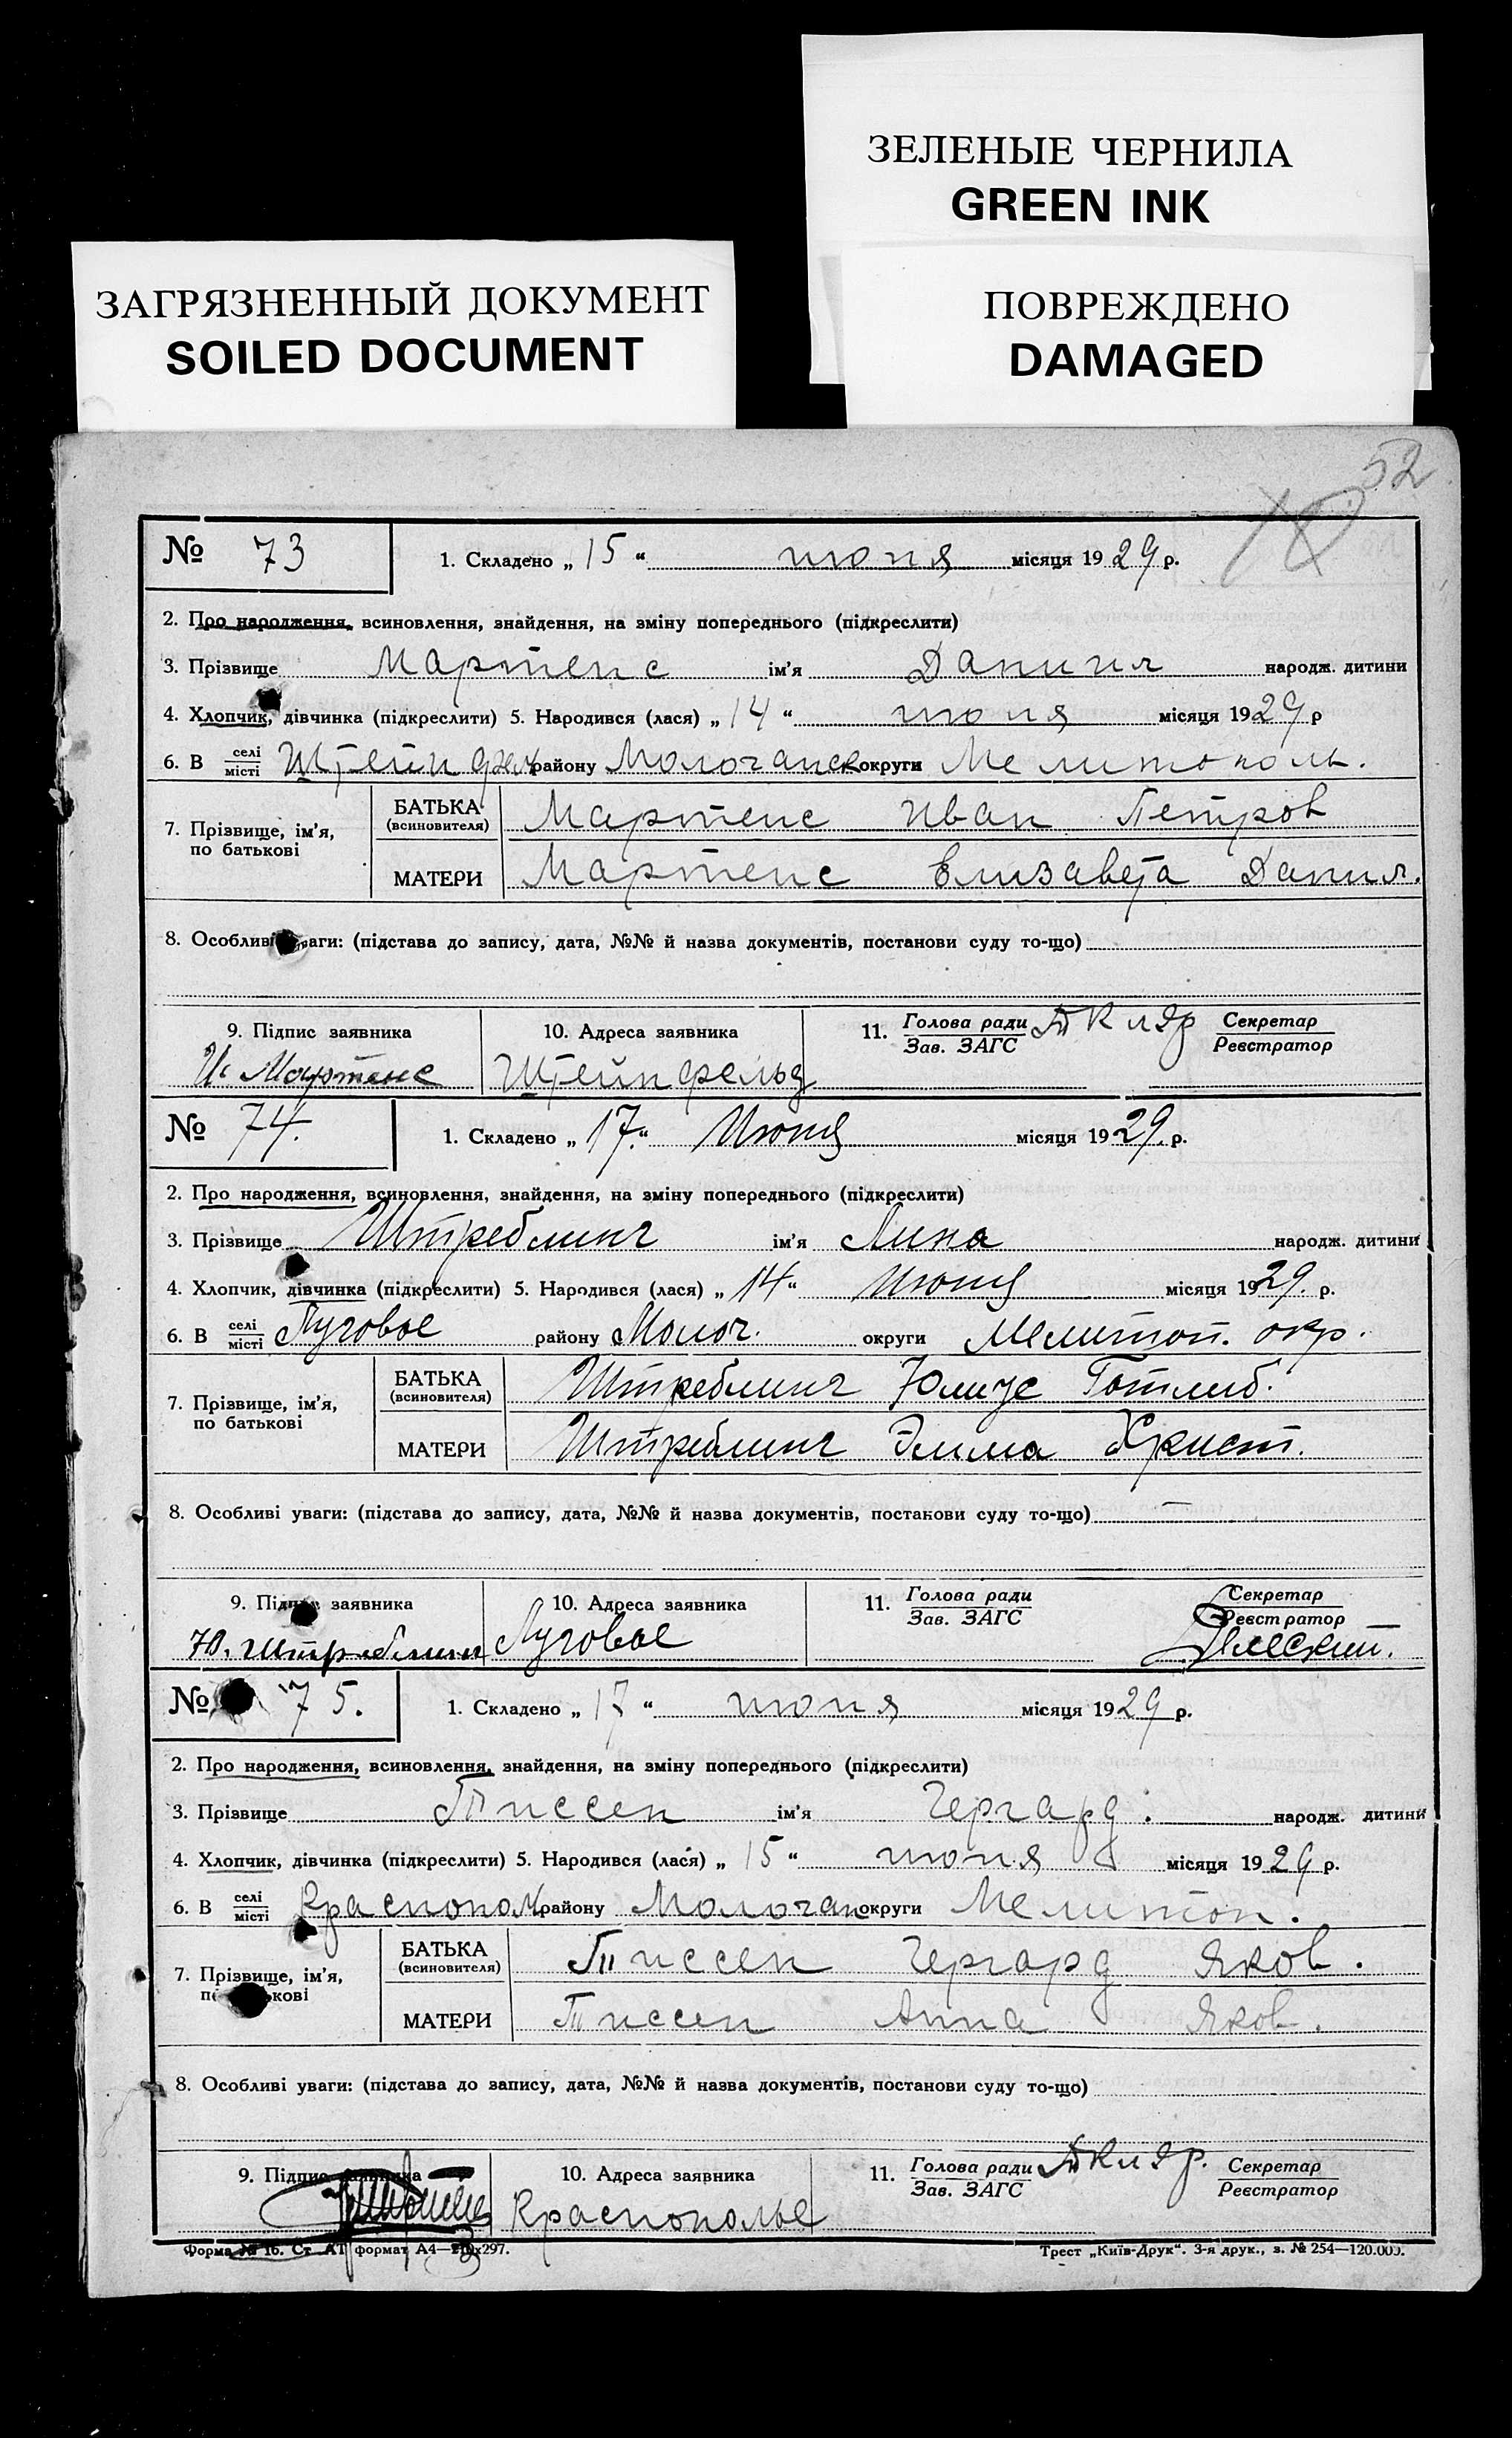 ЗЕЛЕНЫЕ ЧЕРНИЛА
GREEN INK
ЗАГРЯЗНЕННЫЙ ДОКУМЕНТ
SOILED DOCUMENT
ПОВРЕЖДЕНО
DAMAGED
52
№ 73 1. Складено „15“ июня місяця 1929 р.
2. Про народження, всиновлення, знайдення, на зміну попереднього (підкреслити)
3. Прізвище Мартенс ім'я Даниил народж. дитини
4. Хлопчик, дівчинка (підкреслити) 5. Народився (лася) „14“ июня місяця 1929 р
6. В селі/місті Штейнфел району Молочанск округи Мелитополь.
7. Прізвище, ім'я, по батькові
БАТЬКА (всиновителя) Мартенс Иван Петров
МАТЕРИ Мартенс Елизавета Данил.
8. Особливі уваги: (підстава до запису, дата, №№ й назва документів, постанови суду то-що)
9. Підпис заявника 10. Адреса заявника 11. Голова ради/Зав. ЗАГС Секретар/Реєстратор
И. Мартенс Штейнфельд
№ 74. 1. Складено „17.“ Июня місяця 1929. р.
2. Про народження, всиновлення, знайдення, на зміну попереднього (підкреслити)
3. Прізвище Штреблинг ім'я Лина народж. дитини
4. Хлопчик, дівчинка (підкреслити) 5. Народився (лася) „14“ Июня місяця 1929. р.
6. В селі/місті Луговое району Молоч. округи Мелитоп. окр.
7. Прізвище, ім'я, по батькові
БАТЬКА (всиновителя) Штреблинг Юлиус Готлиб.
МАТЕРИ Штреблинг Эмма Христ.
8. Особливі уваги: (підстава до запису, дата, №№ й назва документів, постанови суду то-що)
9. Підпис заявника 10. Адреса заявника 11. Голова ради/Зав. ЗАГС Секретар/Реєстратор
Ю. Штреблинг Луговое
№ 75. 1. Складено „17“ июня місяця 1929 р.
2. Про народження, всиновлення, знайдення, на зміну попереднього (підкреслити)
3. Прізвище Тиссен ім'я Гергард. народж. дитини
4. Хлопчик, дівчинка (підкреслити) 5. Народився (лася) „15“ июня місяця 1929 р.
6. В селі/місті Краснопол району Молочан округи Мелитоп.
7. Прізвище, ім'я, по батькові
БАТЬКА (всиновителя) Тиссен Гергард Яков.
МАТЕРИ Тиссен Анна Яков.
8. Особливі уваги: (підстава до запису, дата, №№ й назва документів, постанови суду то-що)
9. Підпис заявника 10. Адреса заявника 11. Голова ради/Зав. ЗАГС Секретар/Реєстратор
Краснополье
Форма № 16. Ст. А1 формат А4—210х297. Трест „Київ-Друк“. 3-я друк., з. № 254—120.000.